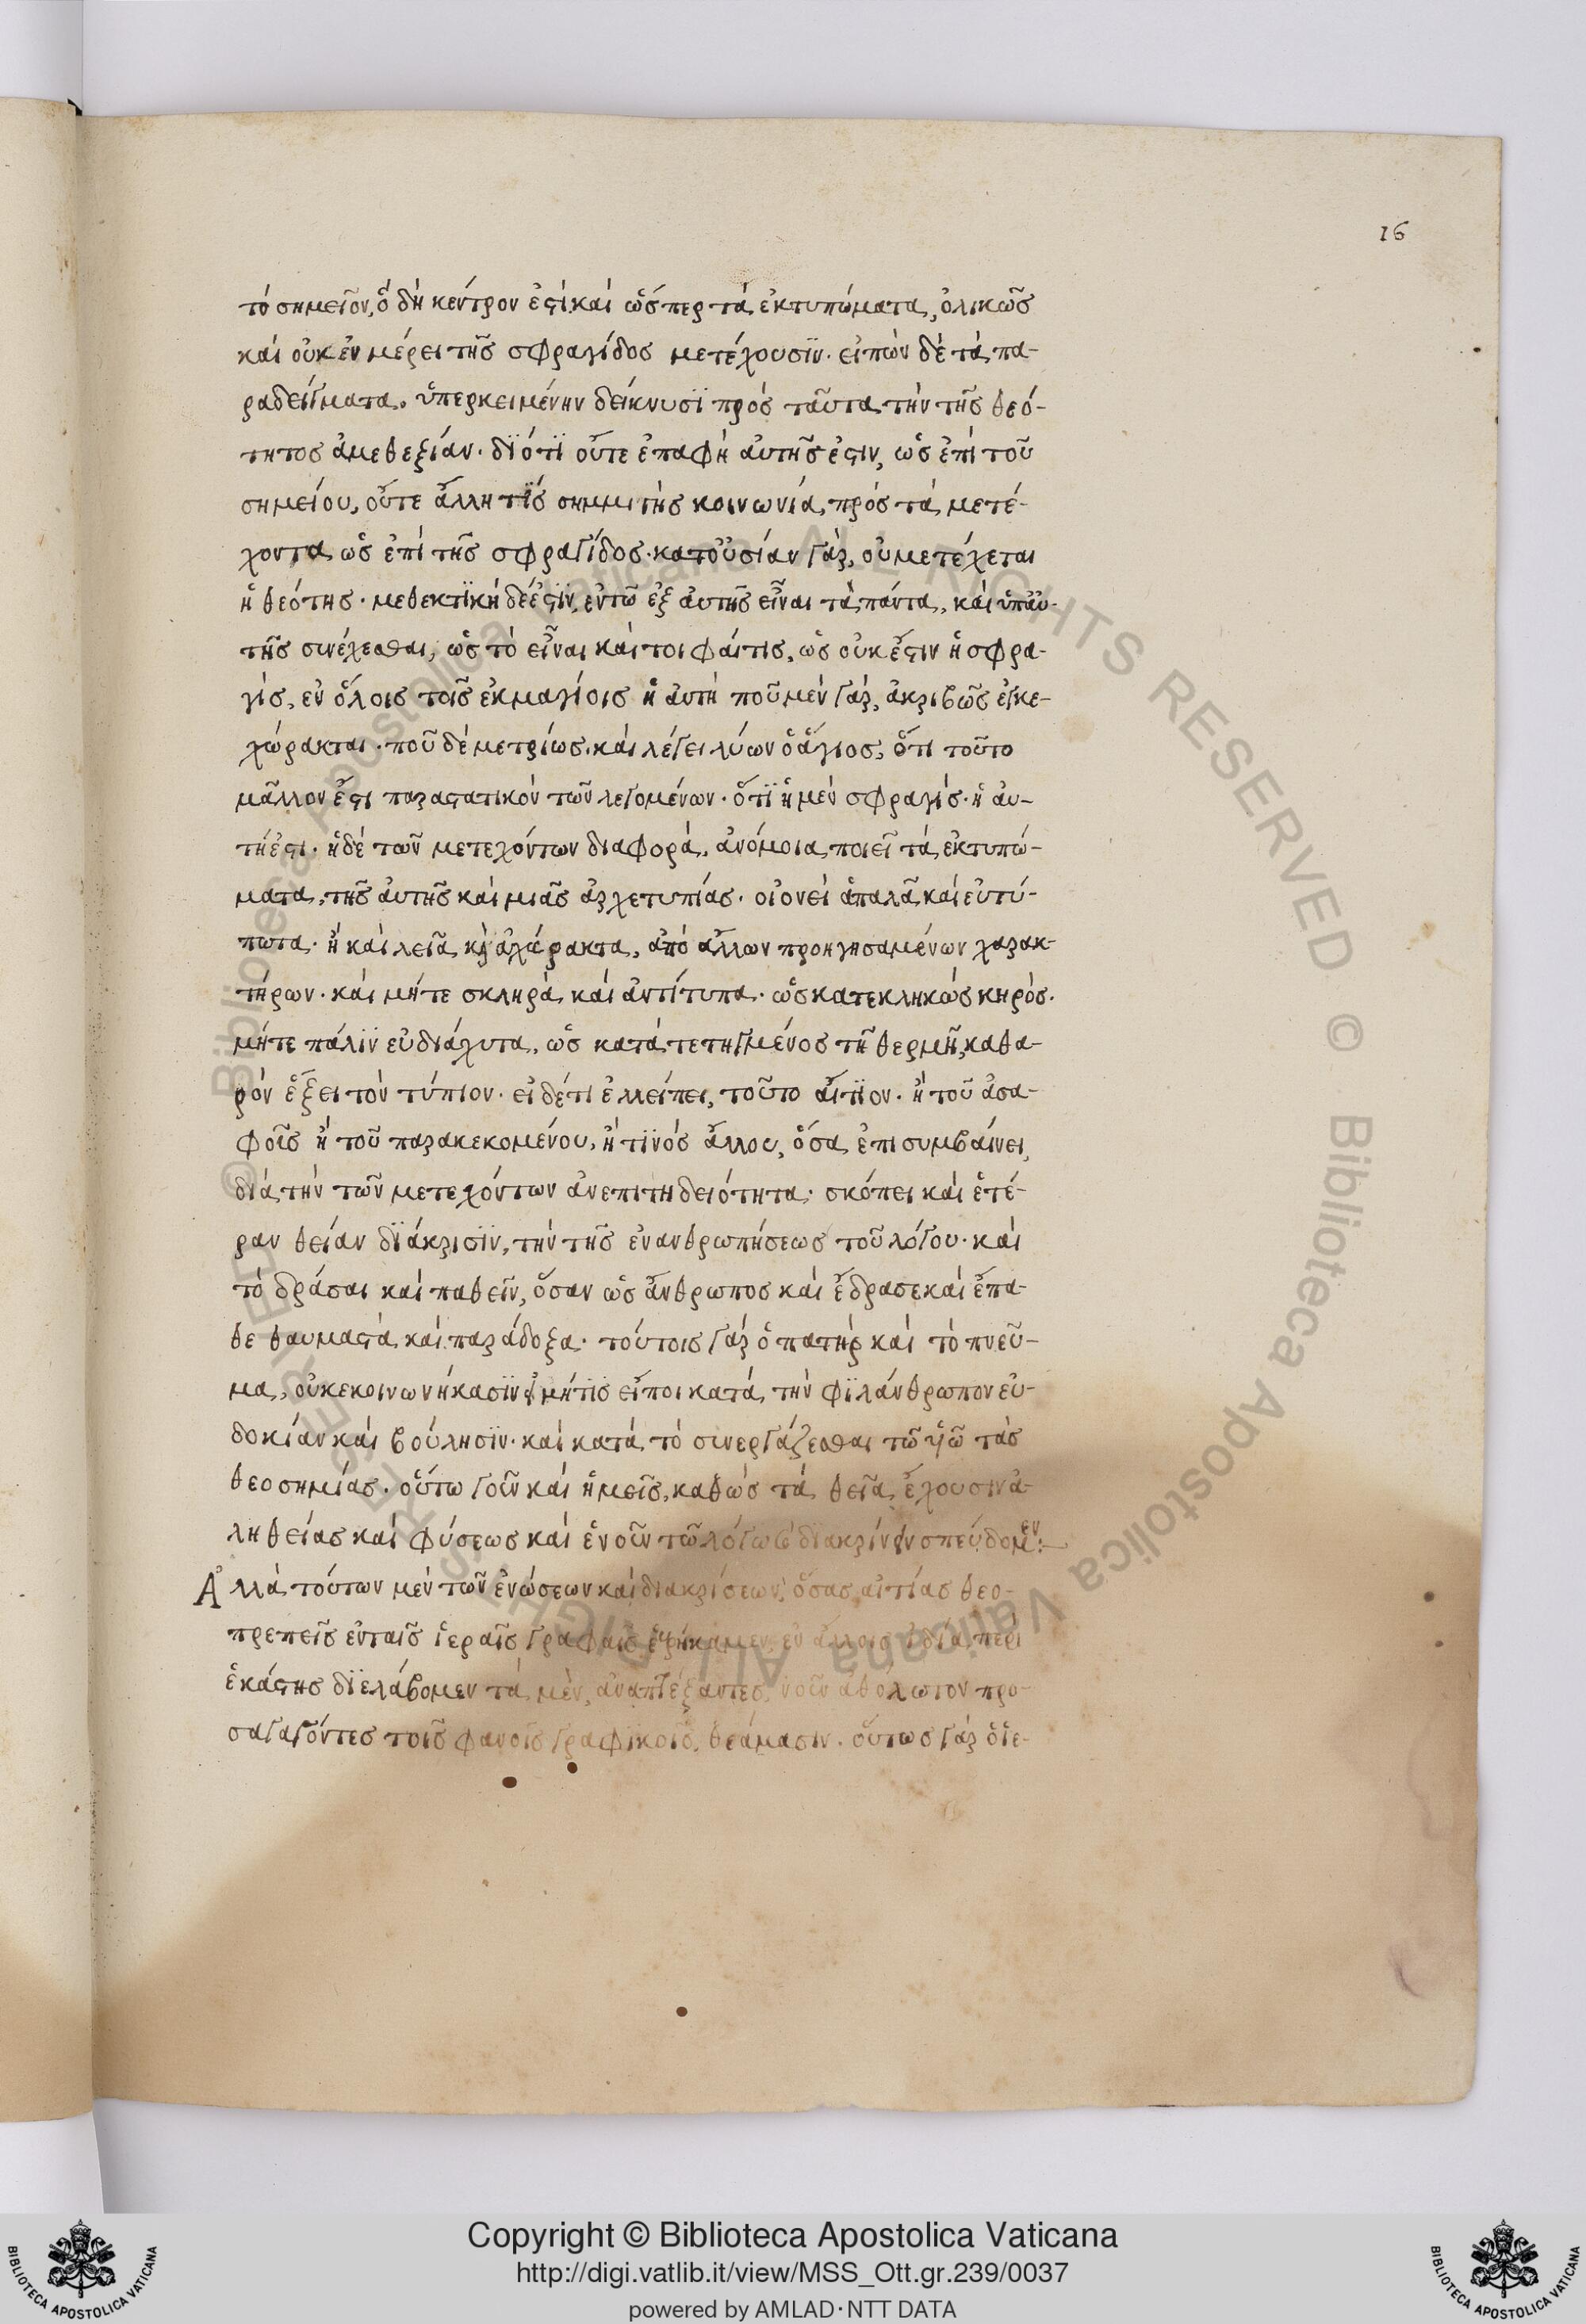 16
τὸ σημεῖον, ὃ δὴ κέντρον ἐστί· καὶ ὥσπερ τὰ ἐκτυπώματα, ὁλικῶς
καὶ οὐκ ἐν μέρει τῆς σφραγίδος μετέχουσϊν· εἰπὼν δὲ τὰ πα-
ραδείγματα. ὑπερκειμένην δείκνυσϊ πρὸς ταῦτα τὴν τῆς θεό-
τητος ἀμεθεξίαν· δϊότϊ οὔτε ἐπαφὴ αὐτῆς ἐστιν, ὡς ἐπὶ τοῦ
σημείου, οὔτε ἄλλη τϊς σημμιτὴς κοινωνία, πρὸς τὰ μετέ-
χοντα ὡς ἐπὶ τῆς σφραγίδος· κατ' οὐσίαν γὰρ, οὐ μετέχεται
ἡ θεότης· μεθεκτϊκὴ δέ ἐστϊν, ἐν τῶ ἐξ αὐτῆς εἶναι τὰ πάντα, καὶ ὑπ' αὐ-
τῆς συνέχεσθαι, ὡς τὸ εἶναι καί τοι φαίτις, ὡς οὐκ ἔστιν ἡ σφρα-
γὶς, ἐν ὅλοις τοῖς ἐκμαγίοις ἡ αὐτὴ ποῦ μὲν γὰρ, ἀκριβῶς ἐγκε-
χώρακται· ποῦ δὲ μετρίως. καὶ λέγει λύων ὁ ἅγιος, ὅτι τοῦτο
μᾶλλον ἔστι παραστατικὸν τῶν λεγομένων· ὅτϊ ἡ μὲν σφραγὶς· ἡ αὐ-
τή ἐστι· ἡ δὲ τῶν μετεχόντων διαφορὰ, ἀνόμοια ποιεῖ τὰ ἐκτυπώ-
ματα, τῆς αὐτῆς καὶ μιᾶς ἀρχετυπίας· οἱονεὶ ἁπαλᾶ καὶ εὐτύ-
πωτα· ἢ καὶ λεῖα κὶ ἀχάρακτα, ἀπὸ ἄλλων προηγησαμένων χαρακ-
τήρων· καὶ μήτε σκληρὰ καὶ ἀντίτυπα· ὡς κατεκληκὼς κηρὸς·
μήτε πάλϊν εὐδιάχυτα, ὡς κατὰ τετηγμένος τῆ θερμῆ, καθα-
ρὸν ἕξει τὸν τύπιον· εἰ δέ τι ἐλλείπει, τοῦτο αἴτϊον· ἢ τοῦ ἀσα-
φοῖς ἢ τοῦ παρακεκομένου, ἢ τϊνὸς ἄλλου, ὅσα ἐπισυμβαίνει,
διὰ τὴν τῶν μετεχόντων ἀνεπιτηδειότητα· σκόπει καὶ ἑτέ-
ραν θείαν δϊάκρισϊν, τὴν τῆς ἐνανθρωπήσεως τοῦ λόγου· καὶ
τὸ δράσαι καὶ παθεῖν, ὅσαν ὡς ἄνθρωπος καὶ ἔδρασε καὶ ἔπα-
θε θαυμαστὰ καὶ παράδοξα· τούτοις γὰρ ὁ πατὴρ καὶ τὸ πνεῦ-
μα, οὐ κεκοινωνήκασϊν εἰ μήτϊς εἴποι κατὰ τὴν φϊλάνθρωπον εὐ-
δοκίαν καὶ βούλησϊν· καὶ κατὰ τὸ συνεργάζεσθαι τῶ υἱῶ τὰς
θεοσημίας· οὕτω γοῦν καὶ ἡμεῖς, καθὼς τὰ θεῖα ἔχουσιν ἀ-
ληθείας καὶ φύσεως καὶ ἑνοῦν τῶ λόγω καὶ διακρίνειν σπεύδομεν:
Ἀλλὰ τούτων μὲν τῶν ἑνώσεων καὶ διακρίσεων, ὅσας αἰτίας θεο-
πρεπεῖς ἐν ταῖς ἱεραῖς γραφαῖς ἐφήκαμεν, ἐν ἄλλοις ἰδία περὶ
ἑκάστης δϊελάβομεν τὰ μὲν, ἀναπτέξαντες, νοῦν ἀθόλωτον προ-
σαγαγόντες τοῖς φανοῖς γραφικοῖς, θεάμασιν· οὕτως γὰρ ὁ ἱε-